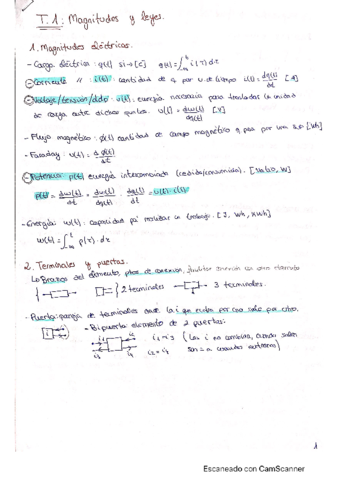 T.1: Magnitudes y leyes.
1. Magnitudes eléctricas.
- Carga eléctrica: q(t) si→[C] q(t)=∫_{-∞}^{t} i(τ)dτ
- Corriente " : i(t): cantidad de q por u de tiempo i(t) = dq(t)/dt [A]
- Voltaje/tensión/ddp: v(t): energía necesaria para trasladar la unidad
de carga entre dichos puntos. v(t) = dw(t)/dq(t) [V]
- Flujo magnético: φ(t) cantidad de campo magnético q pasa por una sup [Wb]
- Faraday: v(t) = dφ(t)/dt
- Potencia: p(t) energía intercambiada (cedida/consumida). [Vatio, W]
p(t) = dw(t)/dt = dw(t)/dq(t) · dq(t)/dt = v(t)·i(t)
- Energía: w(t): capacidad pa' realizar un trabajo. [J, Wh, kWh]
w(t) = ∫_{-∞}^{t} p(τ)·dτ
2. Terminales y puertas.
Brazos del elemento, ptos de conexión, con otro elemento
2 terminales 3 terminales.
- Puerta: pareja de terminales donde la i que entra por uno sale por otro.
- Bipuerta: elemento de 2 puertas:
i
i1 i2 i3 i4
(las i no cambian, cuando salen
son = a cuando entraron)
1
Escaneado con CamScanner